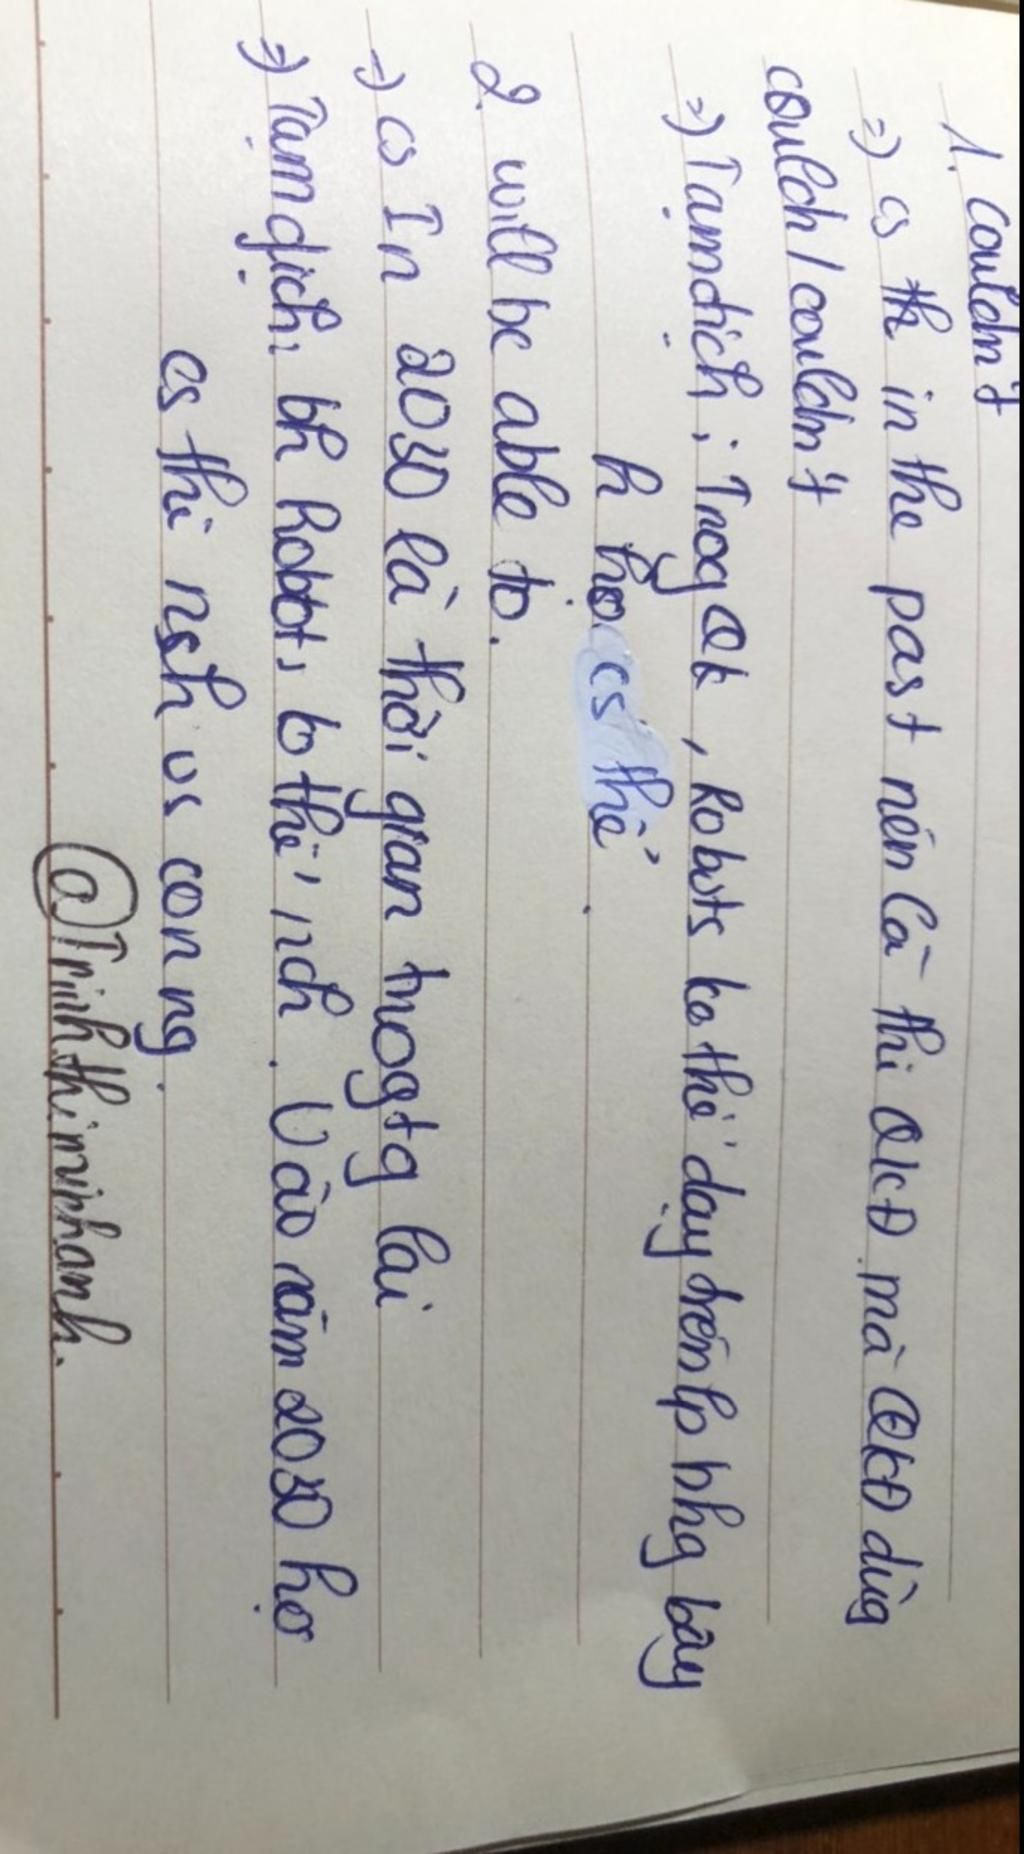 1. couldn't
=) cs th in the past nên là thì QKĐ mà QKĐ dùg
could / couldn't
=) Tạm dịch : Trog Qk, Robots ko thể dạy trên lp nhg bây
h họ cs thể.
2. will be able to.
=) cs In 2030 là thời gian trog tg lai
=) Tạm dịch, bh Robots ko thể nch. Vào năm 2030 họ
cs thể nch vs con ng.
@Trinhthiminhanh.